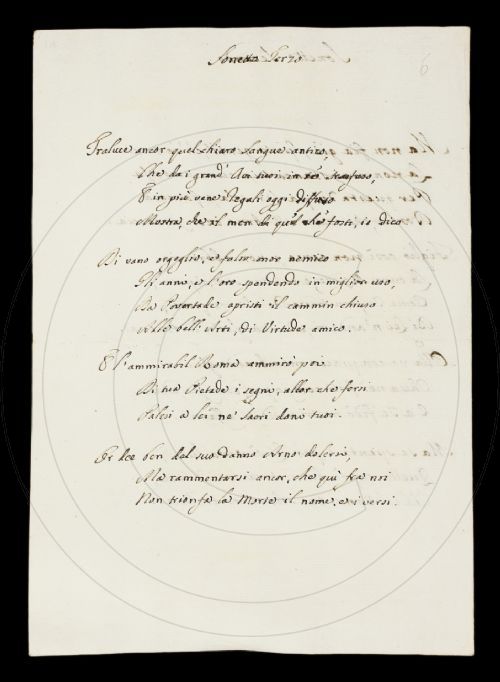 Sonetto Terzo
6
Traluce ancor quel chiaro sangue antico,
Che da i grand' Avi tuoi in te trasfuso,
E in più vene Regali oggi diffuso
Mostra, che il men di quel che fosti, io dico
Di vano orgoglio, e folle amor nemico
Gli anni, e l'oro spendendo in miglior uso,
Da Povertade apristi il cammin chiuso
Alle bell' Arti, di Virtude amico.
E l'ammirabil Roma ammirò poi
Di tua Pietade i segni, allor che forsi
Palesi a lei ne' sacri doni tuoi.
Or dee ben del suo danno Arno dolersi,
Ma rammentarsi ancor, che quì fra noi
Non trionfa la Morte il nome, e i versi.